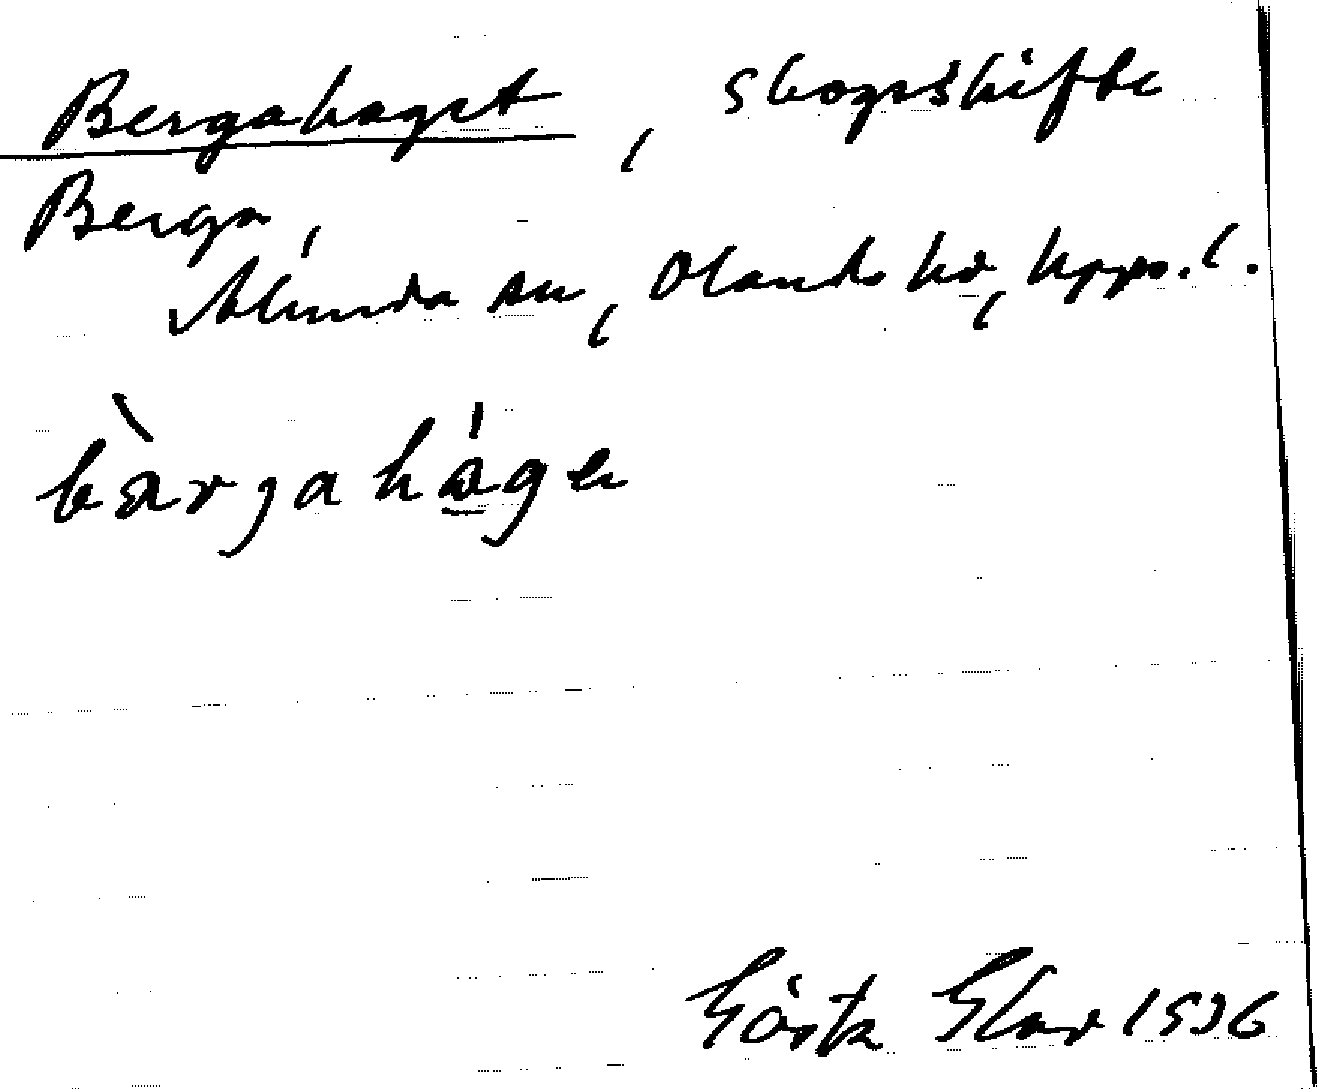 Bergahaget, skogsskifte
Berga,
Alunda sn, Olands hd, Upps. l.
bàrgaháge
Gösta 1936